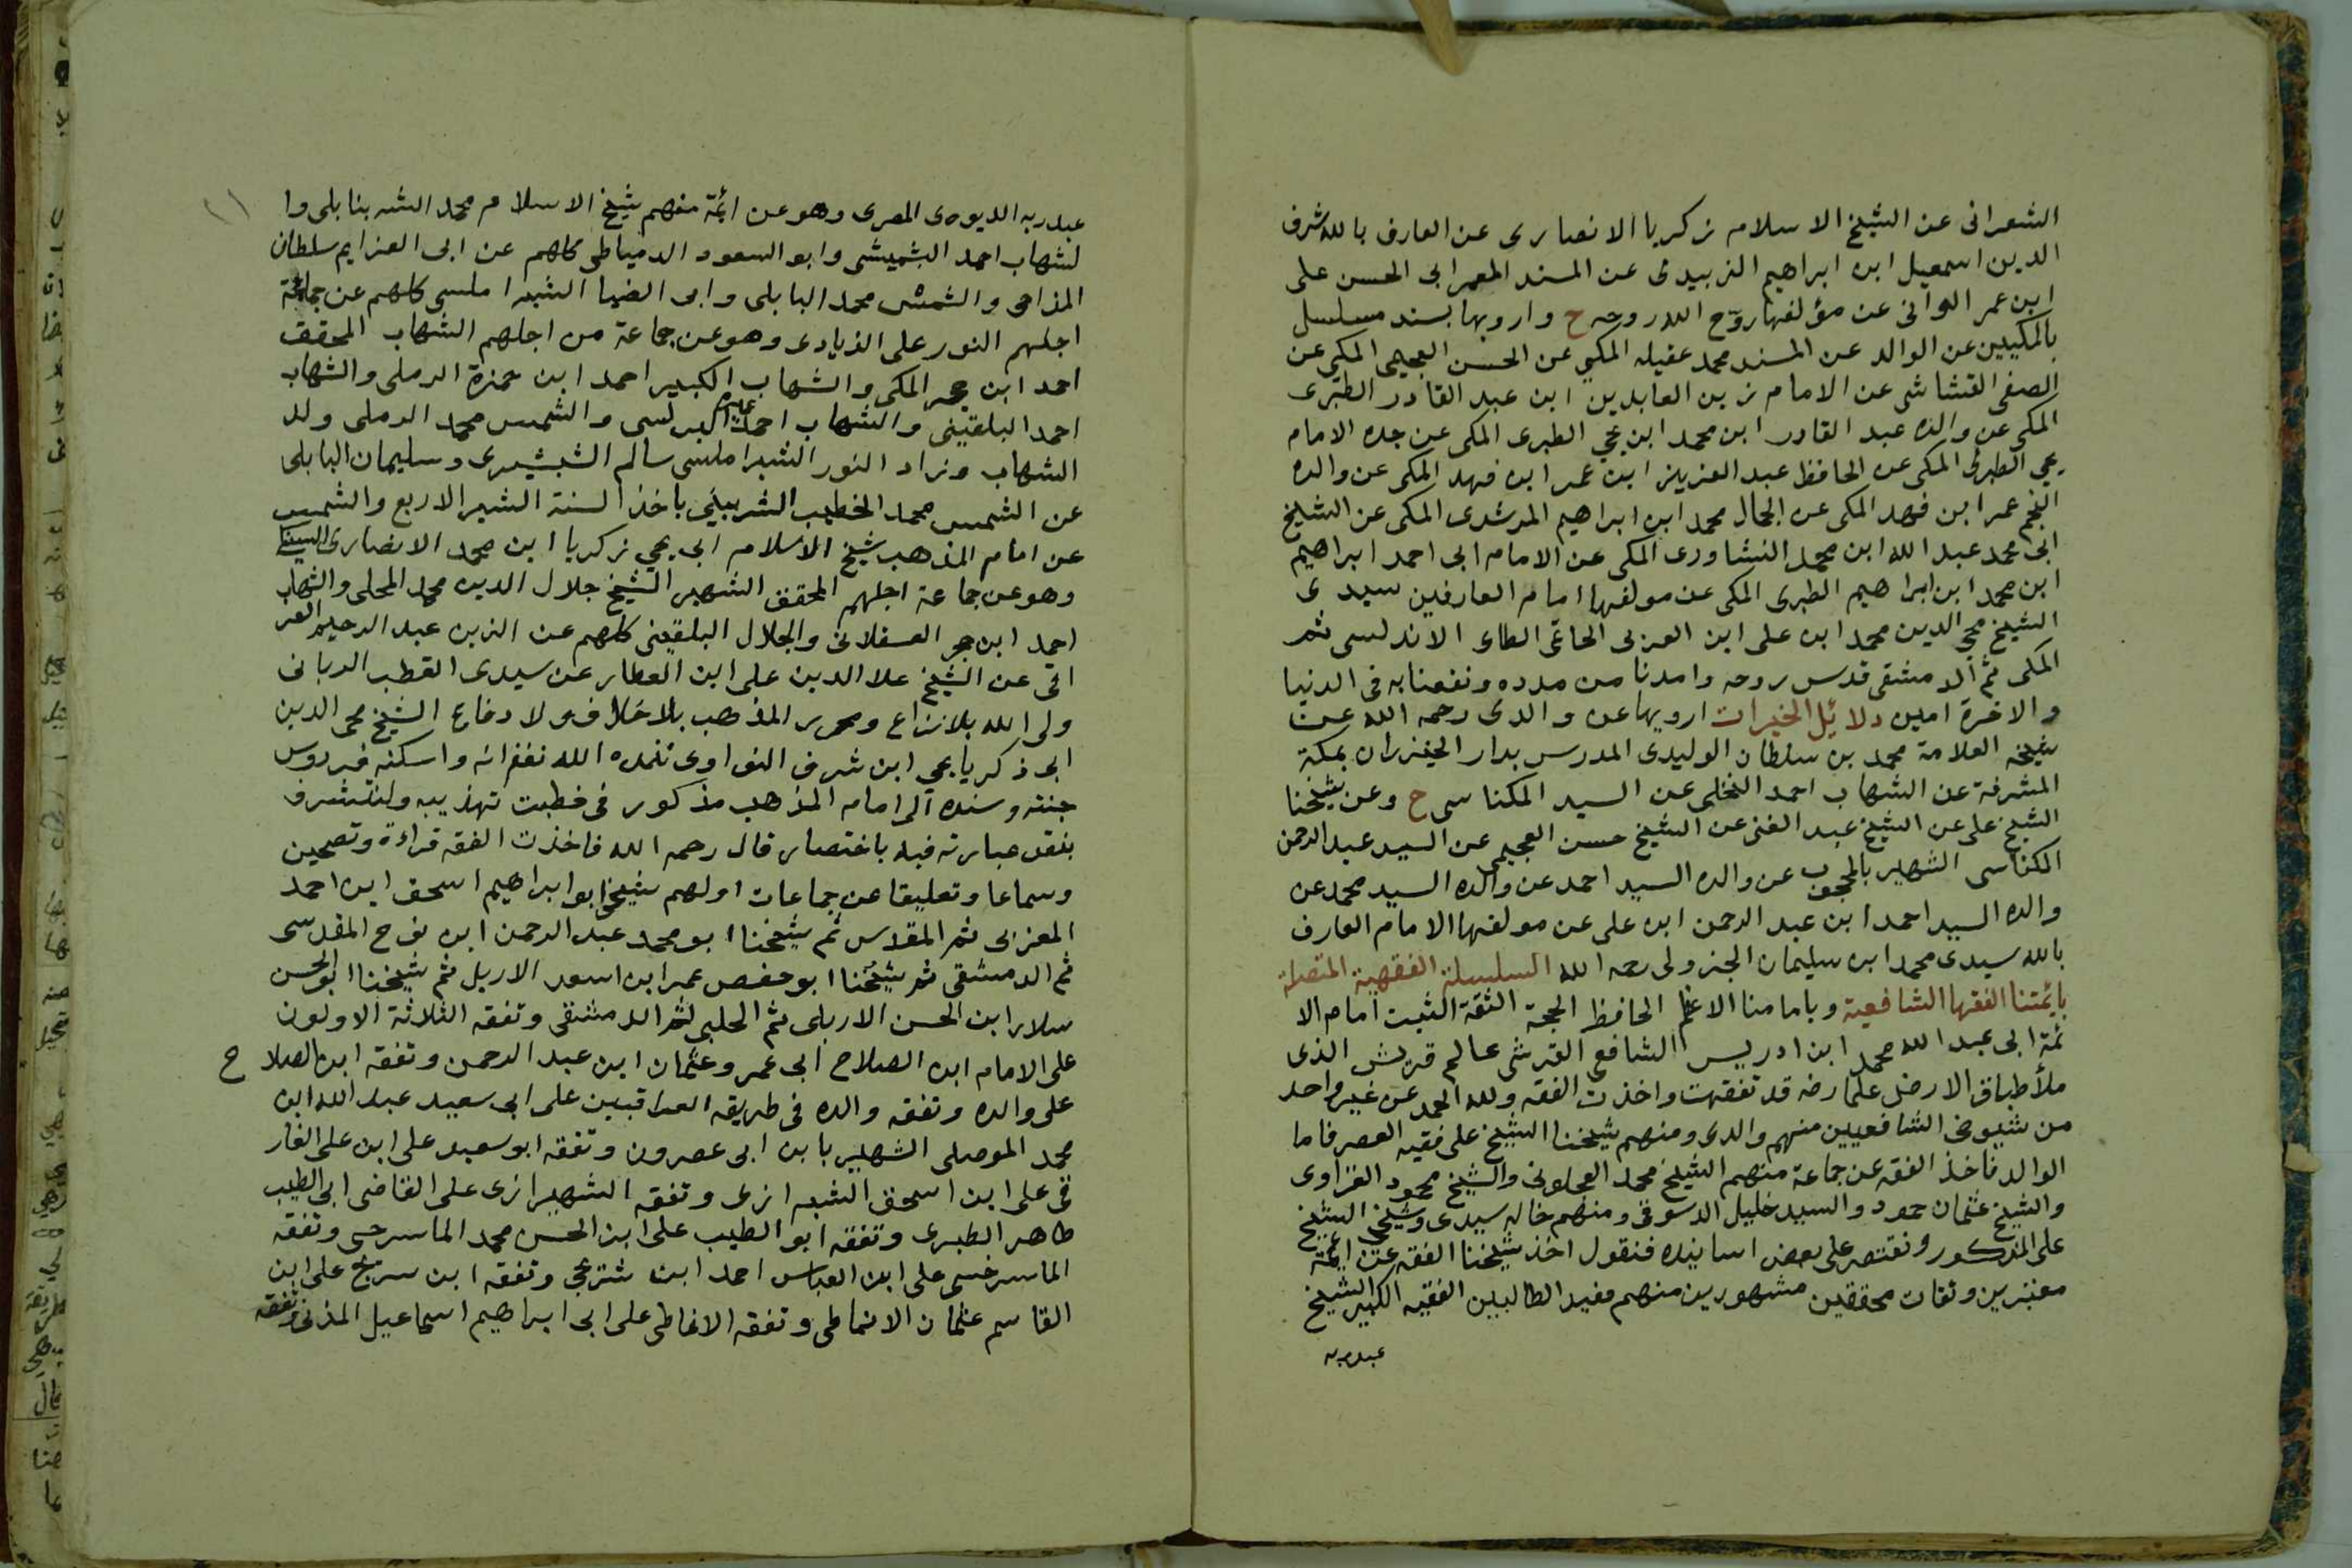 الشعرانى عن الشيخ الاسلام زكريا الانصارى عن العارف بالله شرف
الدين اسمعيل ابن ابراهيم الزبيدى عن المسند المعمر ابى الحسن على
ابن عمر الوانى عن مؤلفها روّح الله روحه ح وارويها بسند مسلسل
بالمكيين عن الوالد عن المسند محمد عقيله المكى عن الحسن العجيمى المكى عن
الصفى القشاشى عن الامام زين العابدين ابن عبد القادر الطبرى
المكى عن والده عبد القادر ابن محمد ابن يحي الطبرى المكى عن جده الامام
يحي الطبرى المكى عن الحافظ عبد العزيز ابن عمر ابن فهد المكى عن والده
النجم عمر ابن فهد المكى عن الجمال محمد ابن ابراهيم المرشدى المكى عن الشيخ
ابى محمد عبد الله ابن محمد النشاورى المكى عن الامام ابى احمد ابراهيم
ابن محمد ابن ابراهيم الطبرى المكى عن مولفها امام العارفين سيدى
الشيخ محي الدين محمد ابن على ابن العربى الحاتمى الطاى الاندلسى ثم
المكى ثم الدمشقى قدس روحه وامدنا من مدده ونفعنا به فى الدنيا
والاخرة امين دلائل الخيرات ارويها عن والدى رحمه الله عن
شيخه العلامة محمد بن سلطان الوليدى المدرس بدار الخيزران بمكة
المشرفة عن الشهاب احمد النخلى عن السيد المكناسى ح وعن شيخنا
الشيخ على عن الشيخ عبد الغنى عن الشيخ حسن العجيمى عن السيد عبد الرحمن
المكناسى الشهير بالمحجوب عن والده السيد احمد عن والده السيد محمد عن
والده السيد احمد ابن عبد الرحمن ابن على عن مولفها الامام العارف
بالله سيدى محمد ابن سليمان الجزولى رحمه الله السلسلة الفقهية المتصلة
بايمتنا الفقها الشافعية وبامامنا الاعظم الحافظ الحجة الثقة الثبت امام الا
ئمة ابى عبد الله محمد ابن ادريس الشافعى القرشى عالم قريش الذى
ملأ طباق الارض علما رضه قد تفقهت واخذت الفقه ولله الحمد عن غير واحد
من شيوخى الشافعيين منهم والدى ومنهم شيخنا الشيخ على فقيه العصر فاما
الوالد فاخذ الفقه عن جماعة منهم الشيخ محمد العجلونى والشيخ محمود الغزاوى
والشيخ عثمان حمود والسيد خليل الدسوقى ومنهم خاله سيدى وشيخى الشيخ
على المذكور ونقتصر على بعض اسانيده فنقول اخذ شيخنا الفقه عن ايمة
معتبرين وثقات محققين مشهورين منهم مفيد الطالبين الفقيه الكبير الشيخ
عبدربه
١١
عبدربه الديوى المصرى وهو عن ائمة منهم شيخ الاسلام محمد الشرنبابلى وا
لشهاب احمد البشبيشى وابو السعود الدمياطى كلهم عن ابى العزايم سلطان
المزاحى والشمس محمد البابلى وابى الضيا الشبراملسى كلهم عن جماعة
اجلهم النور على الزيادى وهو عن جماعة من اجلهم الشهاب المحقق
احمد ابن حجر المكى والشهاب الكبير احمد ابن حمزة الرملى والشهاب
احمد البلقينى والشهاب احمد عميرة البرلسى والشمس محمد الرملى ولد
الشهاب وزاد النور الشبراملسى سالم الشبشيرى وسليمان البابلى
عن الشمس محمد الخطيب الشربينى باخذ السنة الشبر الاربع والشمس
عن امام المذهب شيخ الاسلام ابى يحي زكريا ابن محمد الانصارى السنيكى
وهو عن جماعة اجلهم المحقق الشهير الشيخ جلال الدين محمد المحلى والشهاب
احمد ابن حجر العسقلانى والجلال البلقينى كلهم عن الزين عبد الرحيم العر
اقى عن الشيخ علا الدين على ابن العطار عن سيدى القطب الربانى
ولى الله بلا نزاع ومحرر المذهب بلا خلاف ولا دفاع الشيخ محى الدين
ابى ذكريا يحي ابن شرف النواوى تغمده الله بغفرانه واسكنه فردوس
جنته وسنده الى امام المذهب مذكور فى خطبت تهذيبه ولنتشرف
بنقل عبارته فيه باختصار قال رحمه الله فاخذت الفقه قراءة وتصحين
وسماعا وتعليقا عن جماعات اولهم شيخى ابو ابراهيم اسحق ابن احمد
المغربى ثم المقدس ثم شيخنا ابو محمد عبد الرحمن ابن نوح المقدسى
ثم الدمشقى ثم شيخنا ابو حفص عمر ابن اسعد الاربل ثم شيخنا ابو الحسن
سلار ابن الحسن الاربلى ثم الحلبى ثم الدمشقى وتفقه الثلاثة الاولون
على الامام ابن الصلاح ابى عمرو عثمان ابن عبد الرحمن وتفقه ابن الصلاح
على والده وتفقه والده فى طريقه العراقيين على ابى سعيد عبد الله ابن
محمد الموصلى الشهير بابن ابى عصرون وتفقه ابو سعيد على ابن على الفار
قى على ابن اسحق الشيرازى وتفقه الشهيرازى على القاضى ابى الطيب
طاهر الطبرى وتفقه ابو الطيب على ابن الحسن محمد الماسرجسى وتفقه
الماسرخسى على ابن العباس احمد ابن شريحي وتفقه ابن سريج على ابن
القاسم عثمان الانماطى وتفقه الانماطى على ابى ابراهيم اسماعيل المزنى وتفقه